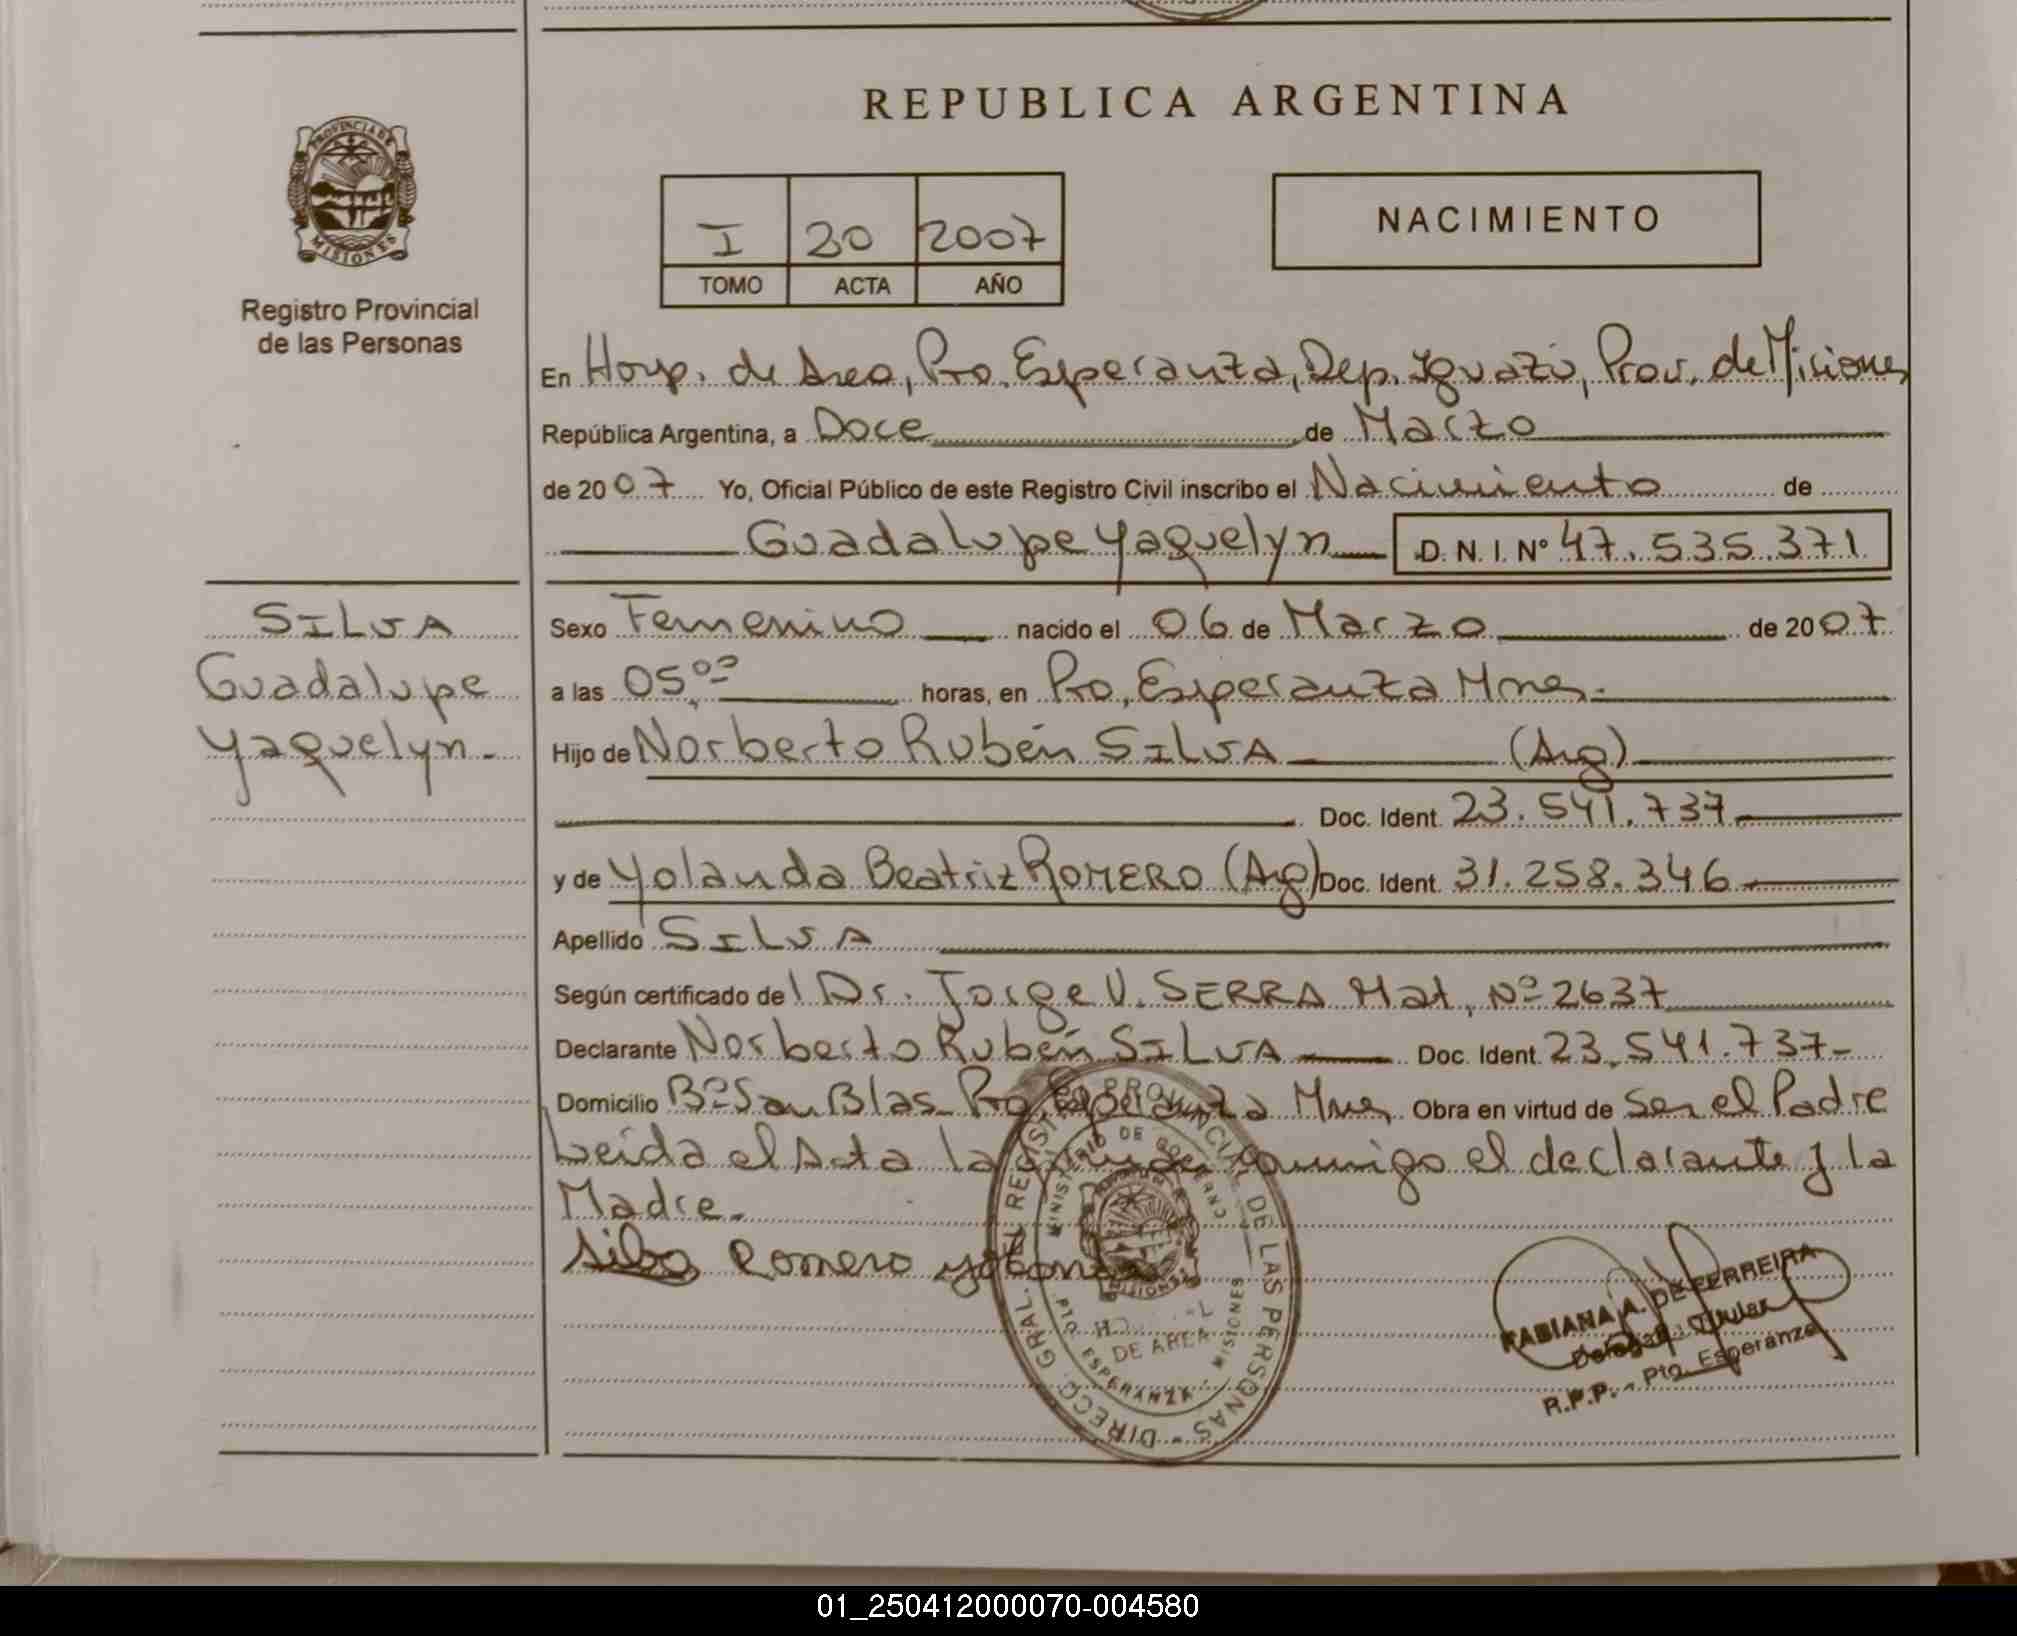 REPUBLICA ARGENTINA
PROVINCIA DE
MISIONES
Registro Provincial
de las Personas
I 20 2007
TOMO ACTA AÑO
NACIMIENTO
En Hosp. de Area, Pto. Esperanza, Dep. Iguazú, Prov. de Misiones
República Argentina, a Doce de Marzo
de 2007 Yo, Oficial Público de este Registro Civil inscribo el Nacimiento de
Guadalupe Yaquelyn D. N. I. Nº 47.535.371
SILVA
Guadalupe
Yaquelyn.-
Sexo Femenino nacido el 06 de Marzo de 2007
a las 05,00 horas, en Pto. Esperanza Mnes.-
Hijo de Norberto Rubén SILVA (Arg)
Doc. Ident. 23.541.737
y de Yolanda Beatriz ROMERO (Arg) Doc. Ident. 31.258.346
Apellido SILVA
Según certificado del Dr. Jorge V. SERRA Mat. Nº 2637
Declarante Norberto Rubén SILVA Doc. Ident. 23.541.737-
Domicilio Bº San Blas Pto. Esperanza Mnes Obra en virtud de Ser el Padre
Leída el Acta la conmigo el declarante y la
Madre.-
Silva Romero Yolanda
DIRECC. GRAL. REGISTRO PROVINCIAL DE LAS PERSONAS
MINISTERIO DE GOBIERNO
DE AREA
PTO ESPERANZA - MISIONES
FABIANA A. DE FERREIRA
Delegada Titular
R.P.P. - Pto. Esperanza
01_250412000070-004580